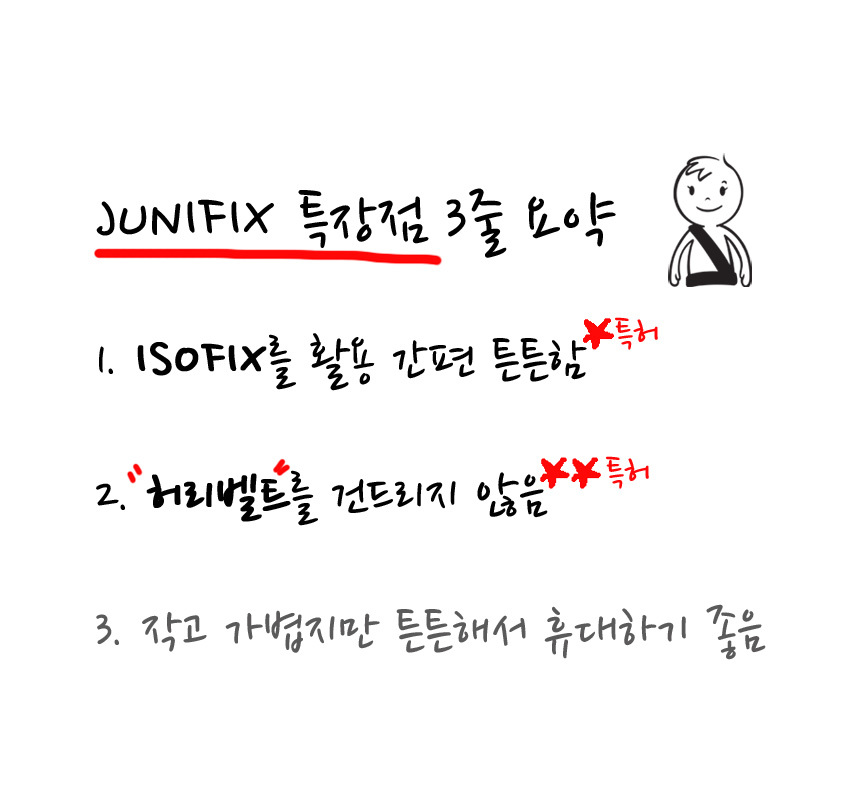 JUNIFIX 특장점 3줄 요약
1. ISOFIX를 활용 간편 튼튼함★특허
2. "허리벨트"를 건드리지 않음★★특허
3. 작고 가볍지만 튼튼해서 휴대하기 좋음